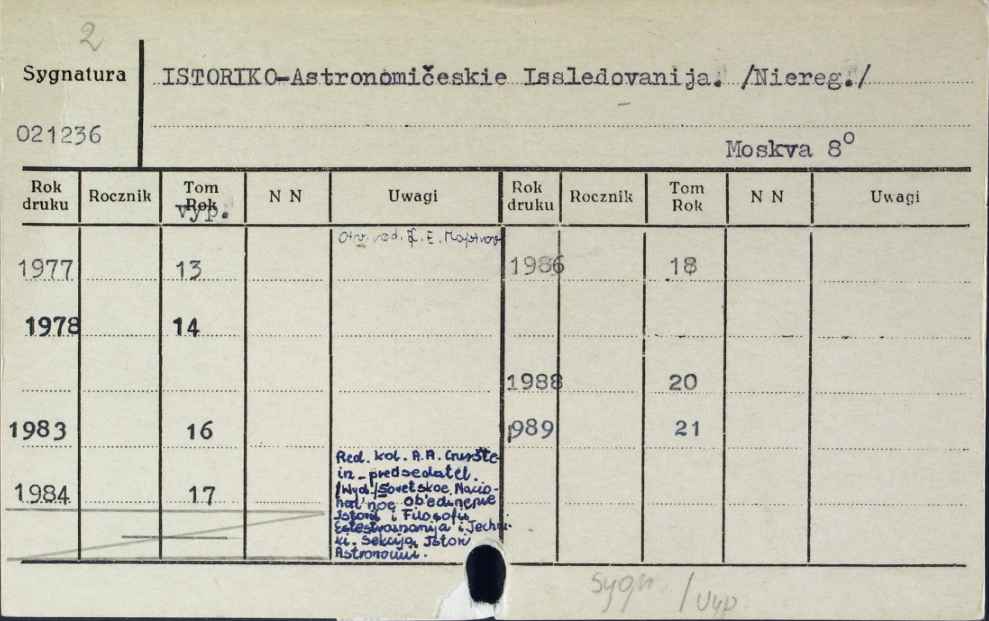 2
Sygnatura ISTORIKO-Astronomičeskie Issledovanija. /Niereg./
021236
Moskva 8⁰
Rok druku Rocznik Tom Rok vyp. N N Uwagi Rok druku Rocznik Tom Rok N N Uwagi
red. E.
1977 13 1986 18
1978 14
1988 20
1983 16 1989 21
Red. kol. A.A.
in - predsedatel.
/Wyd./ Sovetskoe Nacio-
nal'noe Ob'edinenie
Istorii i Filosofii
Estestvoznanija i Techni-
ki. Sekcija Istorii
Astronomii.
1984 17
Sygn. / Vyp